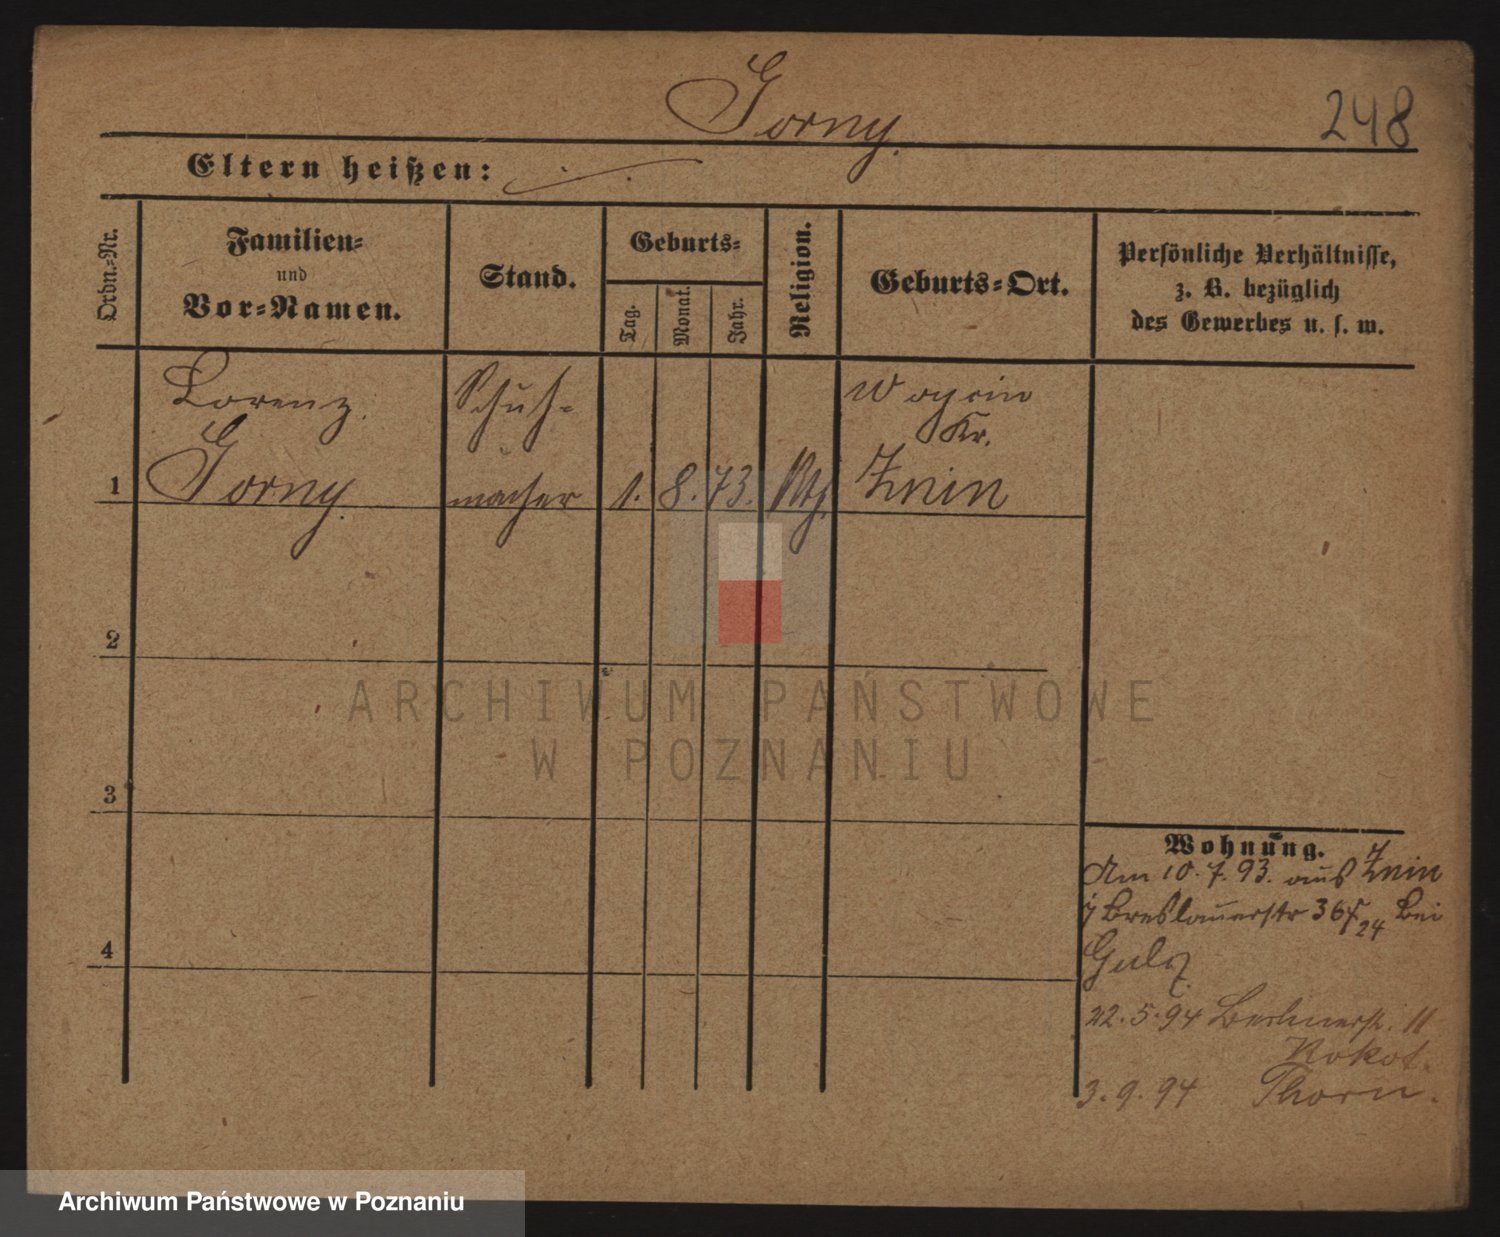 Gorny.
248
Eltern heißen:
Ordn.-Nr.
Familien-
und
Vor-Namen.
Stand.
Geburts-
Tag.
Monat.
Jahr.
Religion.
Geburts-Ort.
Persönliche Verhältnisse,
z. B. bezüglich
des Gewerbes u. s. w.
Lorenz
Schuh-
Kr.
1 Gorny. macher 1. 8. 73. Znin
2
3
4
Wohnung.
Am 10.7.93. aus Znin
Breslauerstr 36 24 bei
22.5.94 Berlinerstr. 11
3.9.94 Thorn.
ARCHIWUM PAŃSTWOWE
W POZNANIU
Archiwum Państwowe w Poznaniu